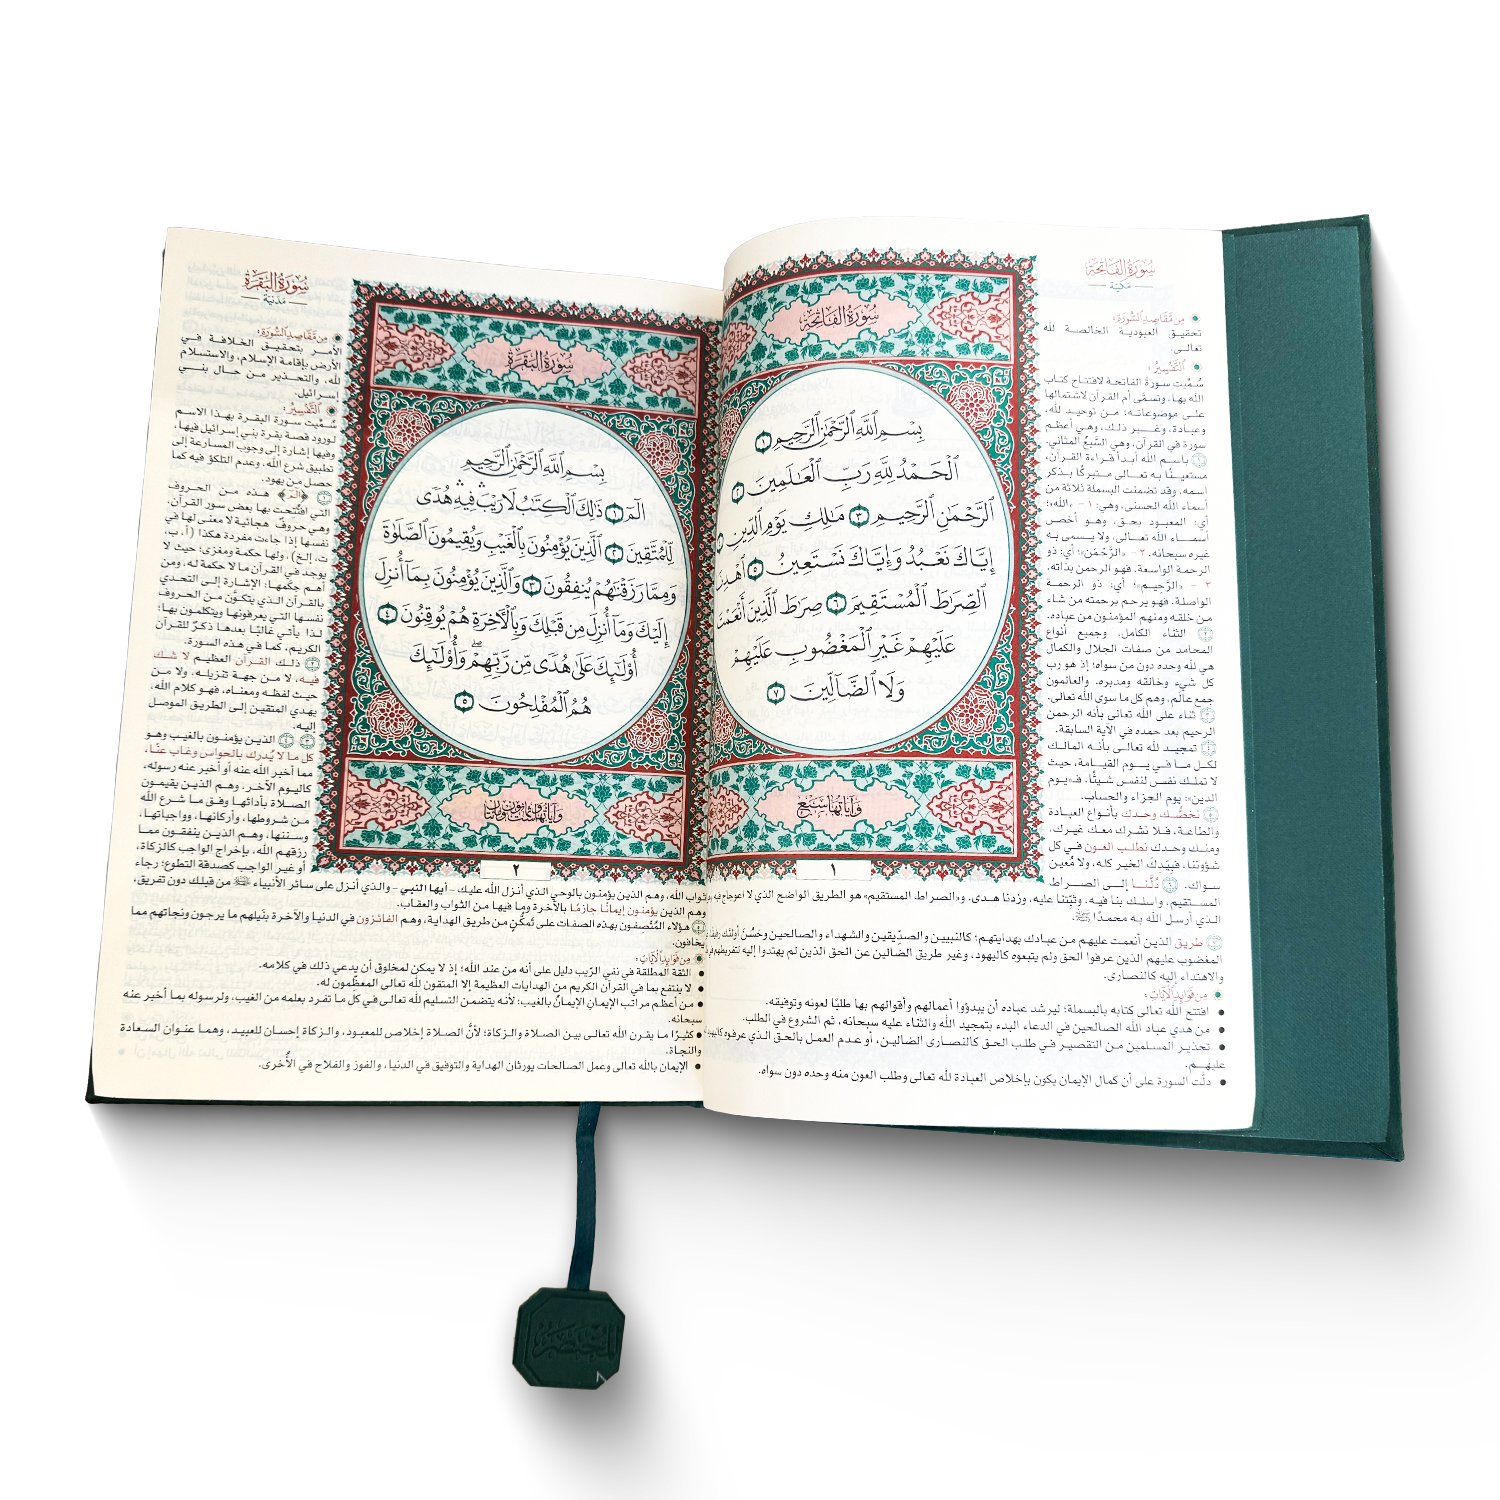 سُورَةُ الْفَاتِحَةِ
مَكِّيَّة
مِن مَّقَاصِدِ السُّورَةِ:
تحقيق العبودية الخالصة لله
تعالى.
التَّفْسِيرُ:
سُمِّيت سورة الفاتحة لافتتاح كتاب
الله بها، وتسمَّى أم القرآن لاشتمالها
على موضوعاته؛ من توحيد لله،
وعبادة، وغير ذلك، وهي أعظم
سورة في القرآن، وهي السَّبع المثاني.
١ باسم الله أبدأ قراءة القرآن،
مستعينًا به تعالى متبركًا بذكر
اسمه. وقد تضمنت البسملة ثلاثة من
أسماء الله الحسنى، وهي: ١ - «الله»؛
أي: المعبود بحق، وهو أخصُّ
أسماء الله تعالى، ولا يسمى به
غيره سبحانه. ٢ - «الرَّحْمَن»؛ أي: ذو
الرحمة الواسعة. فهو الرحمن بذاته.
٣ - «الرَّحِيم»؛ أي: ذو الرحمة
الواصلة. فهو يرحم برحمته من شاء
من خلقه ومنهم المؤمنون من عباده.
٢ الثناء الكامل، وجميع أنواع
المحامد من صفات الجلال والكمال
هي لله وحده دون من سواه؛ إذ هو رب
كل شيء وخالقه ومدبره. والعالمون
جمع عالَم، وهم كل ما سوى الله تعالى.
٣ ثناء على الله تعالى بأنه الرحمن
الرحيم بعد حمده في الآية السابقة.
٤ تمجيد لله تعالى بأنه المالك
لكل ما في يوم القيامة، حيث
لا تملك نفس لنفس شيئًا. فـ«يوم
الدين»: يوم الجزاء والحساب.
٥ نخصُّك وحدك بأنواع العبادة
والطاعة، فلا نشرك معك غيرك،
ومنك وحدك نطلب العون في كل
شؤوننا، فبيدك الخير كله، ولا مُعين
سواك. ٦ دُلَّنا إلى الصراط
المستقيم، واسلك بنا فيه، وثبِّتنا عليه، وزدنا هدى. و«الصراط المستقيم» هو الطريق الواضح الذي لا اعوجاج فيه
الذي أرسل الله به محمدًا ﷺ.
٧ طريق الذين أنعمت عليهم من عبادك بهدايتهم؛ كالنبيين والصدِّيقين والشهداء والصالحين وحَسُنَ أولئك رفيقًا
المغضوب عليهم الذين عرفوا الحق ولم يتبعوه كاليهود، وغير طريق الضالين عن الحق الذين لم يهتدوا إليه لتفريطهم في
والاهتداء إليه كالنصارى.
مِن فَوَائِدِ الْآيَاتِ:
افتتح الله تعالى كتابه بالبسملة؛ ليرشد عباده أن يبدؤوا أعمالهم وأقوالهم بها طلبًا لعونه وتوفيقه.
من هدي عباد الله الصالحين في الدعاء البدء بتمجيد الله والثناء عليه سبحانه، ثم الشروع في الطلب.
تحذير المسلمين من التقصير في طلب الحق كالنصارى الضالين، أو عدم العمل بالحق الذي عرفوه كاليهود
عليهم.
دلَّت السورة على أن كمال الإيمان يكون بإخلاص العبادة لله تعالى وطلب العون منه وحده دون سواه.
سُورَةُ الْفَاتِحَةِ
بِسْمِ ٱللَّهِ ٱلرَّحْمَٰنِ ٱلرَّحِيمِ ١
ٱلْحَمْدُ لِلَّهِ رَبِّ ٱلْعَٰلَمِينَ ٢
ٱلرَّحْمَٰنِ ٱلرَّحِيمِ ٣ مَٰلِكِ يَوْمِ ٱلدِّينِ
إِيَّاكَ نَعْبُدُ وَإِيَّاكَ نَسْتَعِينُ ٥ ٱهْدِنَا
ٱلصِّرَٰطَ ٱلْمُسْتَقِيمَ ٦ صِرَٰطَ ٱلَّذِينَ أَنْعَمْتَ
عَلَيْهِمْ غَيْرِ ٱلْمَغْضُوبِ عَلَيْهِمْ
وَلَا ٱلضَّآلِّينَ ٧
وَآيَاتُهَا سَبْعٌ
١
سُورَةُ الْبَقَرَةِ
بِسْمِ ٱللَّهِ ٱلرَّحْمَٰنِ ٱلرَّحِيمِ
الٓمٓ ١ ذَٰلِكَ ٱلْكِتَٰبُ لَا رَيْبَۛ فِيهِۛ هُدًى
لِّلْمُتَّقِينَ ٢ ٱلَّذِينَ يُؤْمِنُونَ بِٱلْغَيْبِ وَيُقِيمُونَ ٱلصَّلَوٰةَ
وَمِمَّا رَزَقْنَٰهُمْ يُنفِقُونَ ٣ وَٱلَّذِينَ يُؤْمِنُونَ بِمَآ أُنزِلَ
إِلَيْكَ وَمَآ أُنزِلَ مِن قَبْلِكَ وَبِٱلْأٓخِرَةِ هُمْ يُوقِنُونَ ٤
أُو۟لَٰٓئِكَ عَلَىٰ هُدًى مِّن رَّبِّهِمْۖ وَأُو۟لَٰٓئِكَ
هُمُ ٱلْمُفْلِحُونَ ٥
وَآيَاتُهَا سِتٌّ وَثَمَانُونَ وَمِائَتَانِ
٢
سُورَةُ الْبَقَرَةِ
مَدَنِيَّة
مِن مَّقَاصِدِ السُّورَةِ:
الأمر بتحقيق الخلافة في
الأرض بإقامة الإسلام، والاستسلام
لله، والتحذير من حال بني
إسرائيل.
التَّفْسِيرُ:
سُمِّيت سورة البقرة بهذا الاسم
لورود قصة بقرة بني إسرائيل فيها،
وفيها إشارة إلى وجوب المسارعة إلى
تطبيق شرع الله، وعدم التلكؤ فيه كما
حصل من يهود.
١ ﴿الٓمٓ﴾ هذه من الحروف
التي افتُتحت بها بعض سور القرآن،
وهي حروفٌ هجائية لا معنى لها في
نفسها إذا جاءت مفردة هكذا (أ، ب،
ت، إلخ)، ولها حكمة ومغزى؛ حيث لا
يوجد في القرآن ما لا حكمة له، ومن
أهم حِكَمها: الإشارة إلى التحدي
بالقرآن الذي يتكوَّن من الحروف
نفسها التي يعرفونها ويتكلمون بها؛
لذا يأتي غالبًا بعدها ذكرٌ للقرآن
الكريم، كما في هذه السورة.
٢ ذلك القرآن العظيم لا شك
فيه، لا من جهة تنزيله، ولا من
حيث لفظه ومعناه، فهو كلام الله،
يهدي المتقين إلى الطريق الموصل
إليه.
٣ ٤ الذين يؤمنون بالغيب وهو
كل ما لا يُدرك بالحواس وغاب عنّا،
مما أخبر الله عنه أو أخبر عنه رسوله،
كاليوم الآخر. وهم الذين يقيمون
الصلاة بأدائها وفق ما شرع الله
من شروطها، وأركانها، وواجباتها،
وسننها، وهم الذين ينفقون مما
رزقهم الله، بإخراج الواجب كالزكاة،
أو غير الواجب كصدقة التطوع؛ رجاء
ثواب الله، وهم الذين يؤمنون بالوحي الذي أنزل الله عليك - أيها النبي - والذي أنزل على سائر الأنبياء من قبلك دون تفريق،
وهم الذين يؤمنون إيمانًا جازمًا بالآخرة وما فيها من الثواب والعقاب.
٥ هؤلاء المُتَّصفون بهذه الصفات على تَمكُّن من طريق الهداية، وهم الفائزون في الدنيا والآخرة بنَيلهم ما يرجون ونجاتهم مما
يخافون.
مِن فَوَائِدِ الْآيَاتِ:
الثقة المطلقة في نفي الرَّيب دليل على أنه من عند الله؛ إذ لا يمكن لمخلوق أن يدعي ذلك في كلامه.
لا ينتفع بما في القرآن الكريم من الهدايات العظيمة إلا المتقون لله تعالى المعظِّمون له.
من أعظم مراتب الإيمان الإيمانُ بالغيب؛ لأنه يتضمن التسليم لله تعالى في كل ما تفرد بعلمه من الغيب، ولرسوله بما أخبر عنه
سبحانه.
كثيرًا ما يقرن الله تعالى بين الصلاة والزكاة؛ لأنَّ الصلاة إخلاص للمعبود، والزكاة إحسان للعبيد، وهما عنوان السعادة
والنجاة.
الإيمان بالله تعالى وعمل الصالحات يورثان الهداية والتوفيق في الدنيا، والفوز والفلاح في الأُخرى.
المختصر